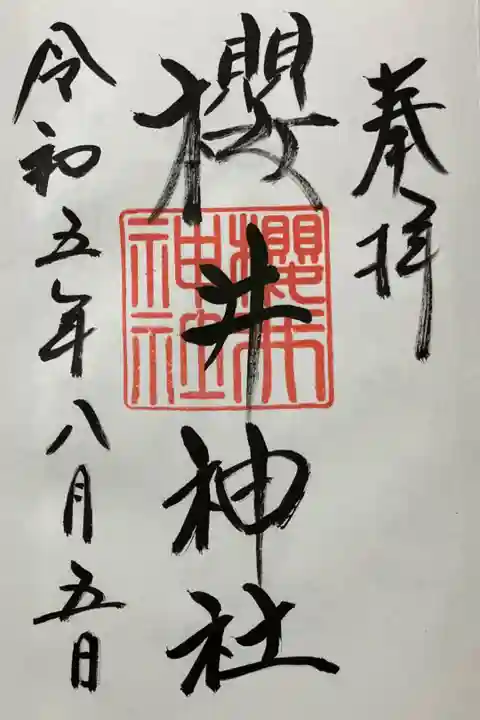 奉拝
櫻井神社
櫻井神社
令和五年八月五日